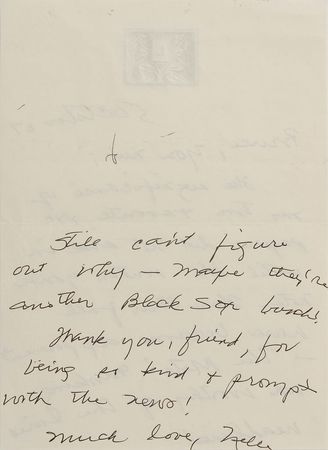 Still can't figure
out why — maybe they're
another Black Sox bunch!
Thank you, friend, for
being so kind + prompt
with the news!
Much love,